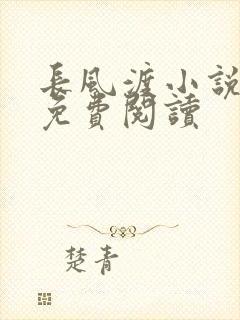 長風渡小說
免費閱讀
楚青